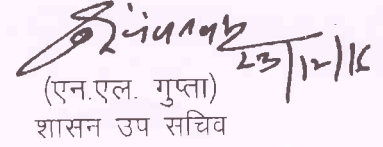 23/12/16
(एन.एल. गुप्ता)
शासन उप सचिव